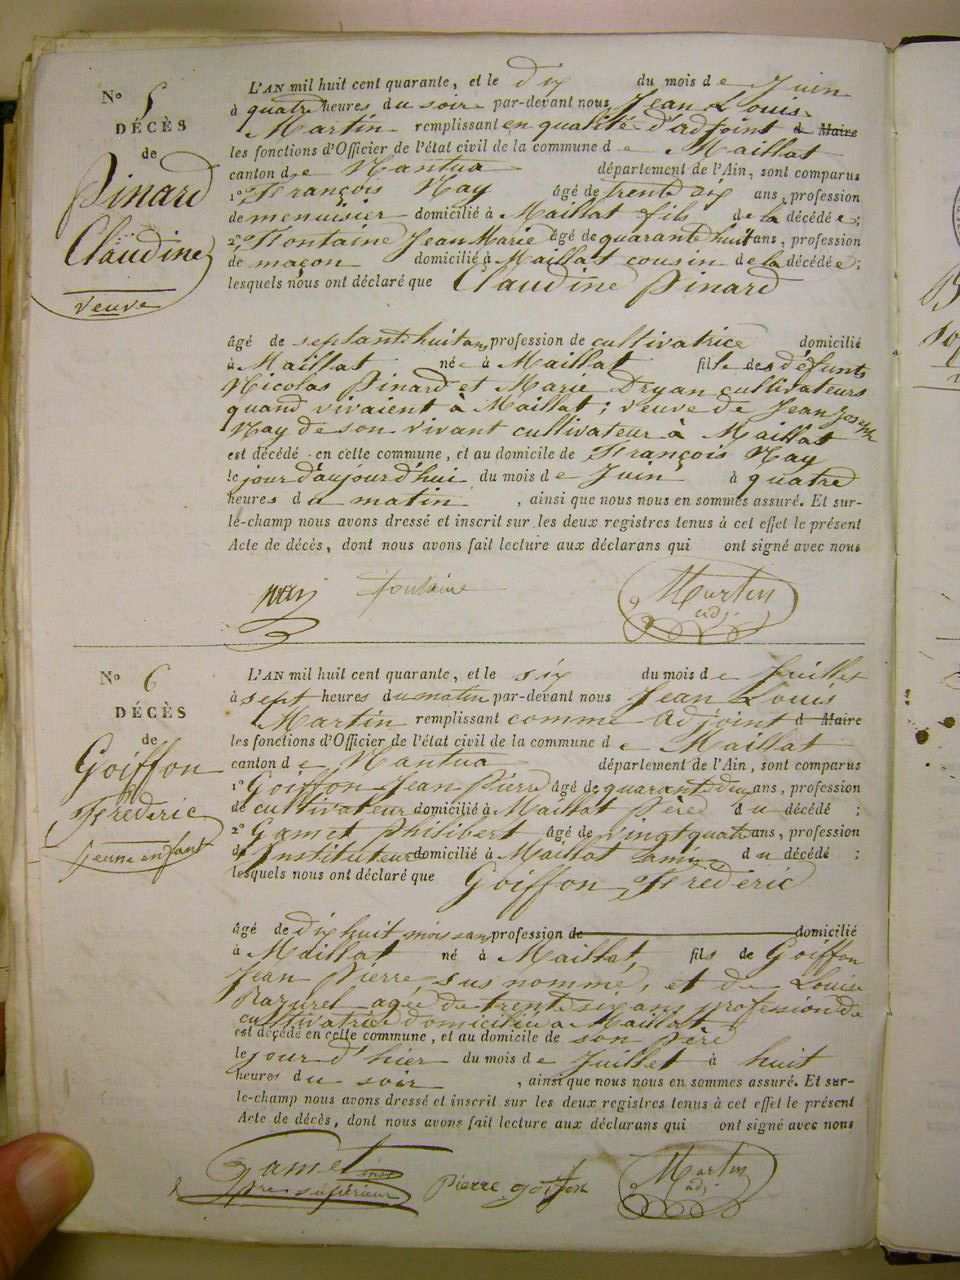 N° 5
DÉCÈS
de
Pinard
Claudine
veuve
L'AN mil huit cent quarante, et le dix du mois de Juin
à quatre heures du soir par-devant nous Jean Louis
Martin remplissant en qualité d'adjoint d Maire
les fonctions d'Officier de l'état civil de la commune de Maillat
canton de Nantua département de l'Ain, sont comparus
1° François Nay âgé de trente six ans, profession
de menuisier domicilié à Maillat fils de la décédée;
2° Fontaine Jean Marie âgé de quarante huit ans, profession
de maçon domicilié à Maillat cousin de la décédée;
lesquels nous ont déclaré que Claudine Pinard
âgé de septante huit ans profession de cultivatrice domicilié
à Maillat né à Maillat fille des défunts
Nicolas Pinard et Marie Dryan cultivateurs
quand vivaient à Maillat; veuve de Jean Joseph
Nay de son vivant cultivateur à Maillat
est décédé en cette commune, et au domicile de François Nay
le jour d'aujourd'hui du mois de Juin à quatre
heures du matin, ainsi que nous nous en sommes assuré. Et sur-
le-champ nous avons dressé et inscrit sur les deux registres tenus à cet effet le présent
Acte de décès, dont nous avons fait lecture aux déclarans qui ont signé avec nous
nay fontaine Martin
adj.
N° 6
DÉCÈS
de
Goiffon
Frédéric
jeune enfant
L'AN mil huit cent quarante, et le six du mois de Juillet
à sept heures du matin par-devant nous Jean Louis
Martin remplissant comme adjoint d Maire
les fonctions d'Officier de l'état civil de la commune de Maillat
canton de Nantua département de l'Ain, sont comparus
1° Goiffon Jean Pierre âgé de quarante deux ans, profession
de cultivateur domicilié à Maillat père du décédé;
2° Gamet Philibert âgé de vingt quatre ans, profession
de Instituteur domicilié à Maillat ami du décédé;
lesquels nous ont déclaré que Goiffon Frédéric
âgé de dix huit mois ans profession de domicilié
à Maillat né à Maillat, fils de Goiffon
Jean Pierre sus nommé, et de Louise
agée de trente six ans profession de
cultivatrice domiciliée à Maillat
est décédé en cette commune, et au domicile de son père
le jour d'hier du mois de Juillet à huit
heures du soir, ainsi que nous nous en sommes assuré. Et sur-
le-champ nous avons dressé et inscrit sur les deux registres tenus à cet effet le présent
Acte de décès, dont nous avons fait lecture aux déclarans qui ont signé avec nous
Gamet Pierre goiffon Martin
supérieur adj.